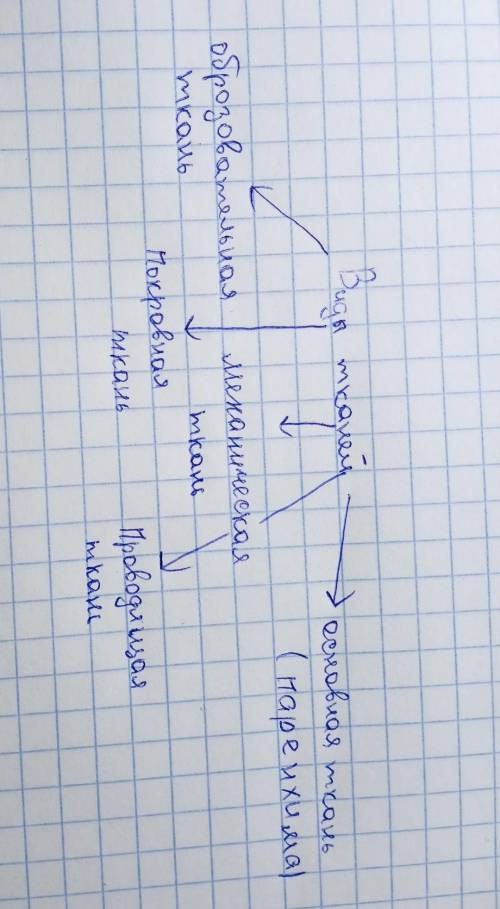 Виды тканей
оброзовательная
ткань
Покровная
ткань
механическая
ткань
Проводящая
ткань
основная ткань
(паренхима)